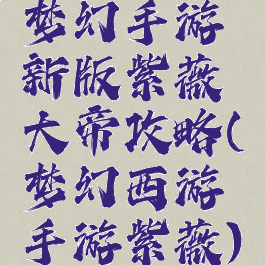 梦幻手游
新版紫薇
大帝攻略(
梦幻西游
手游紫薇)